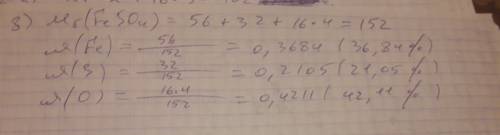 з) Mr(FeSO4) = 56 + 32 + 16·4 = 152
ω(Fe) = 56/152 = 0,3684 (36,84%)
ω(S) = 32/152 = 0,2105 (21,05%)
ω(O) = 16·4/152 = 0,4211 (42,11%)